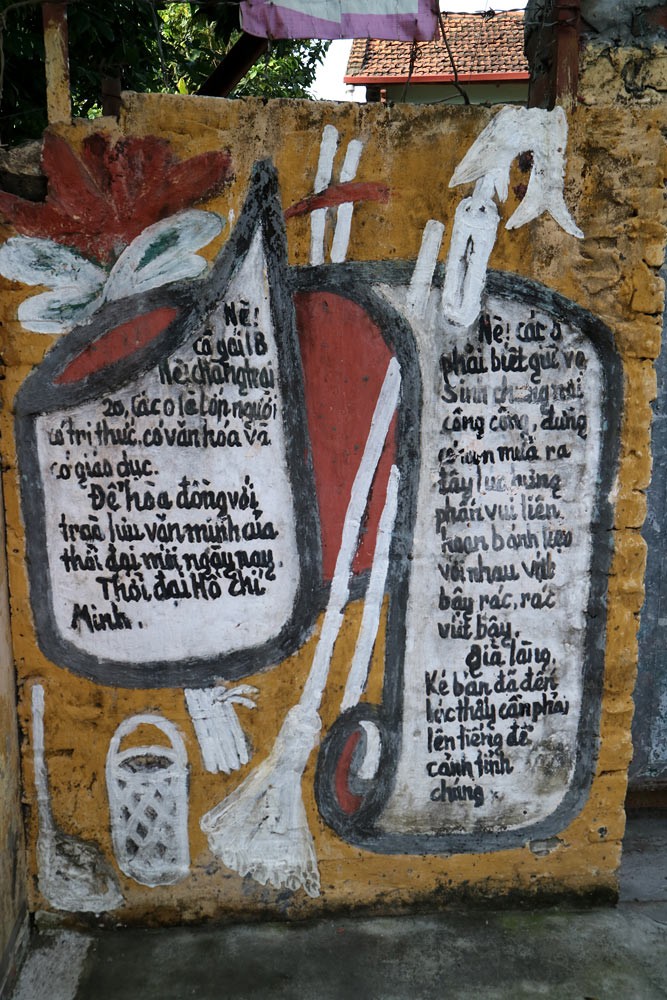 Nè!
cô gái 18
Nè! chàng trai
20, các o là lớp người
có tri thức, có văn hóa và
có giáo dục.
Để hòa đồng với
trào lưu văn minh của
thời đại mới ngày nay.
Thời đại Hồ Chí
Minh.
Nè! các o
phải biết giữ vệ
sinh chung nơi
công cộng, đừng
mứa ra
đấy lúc hứng
phấn vui liên
hoan bánh kẹo
với nhau vứt
bậy rác, rác
vứt bậy,
già làng,
Kẻ bần đã đến
lúc thấy cần phải
lên tiếng để
cảnh tỉnh
chăng